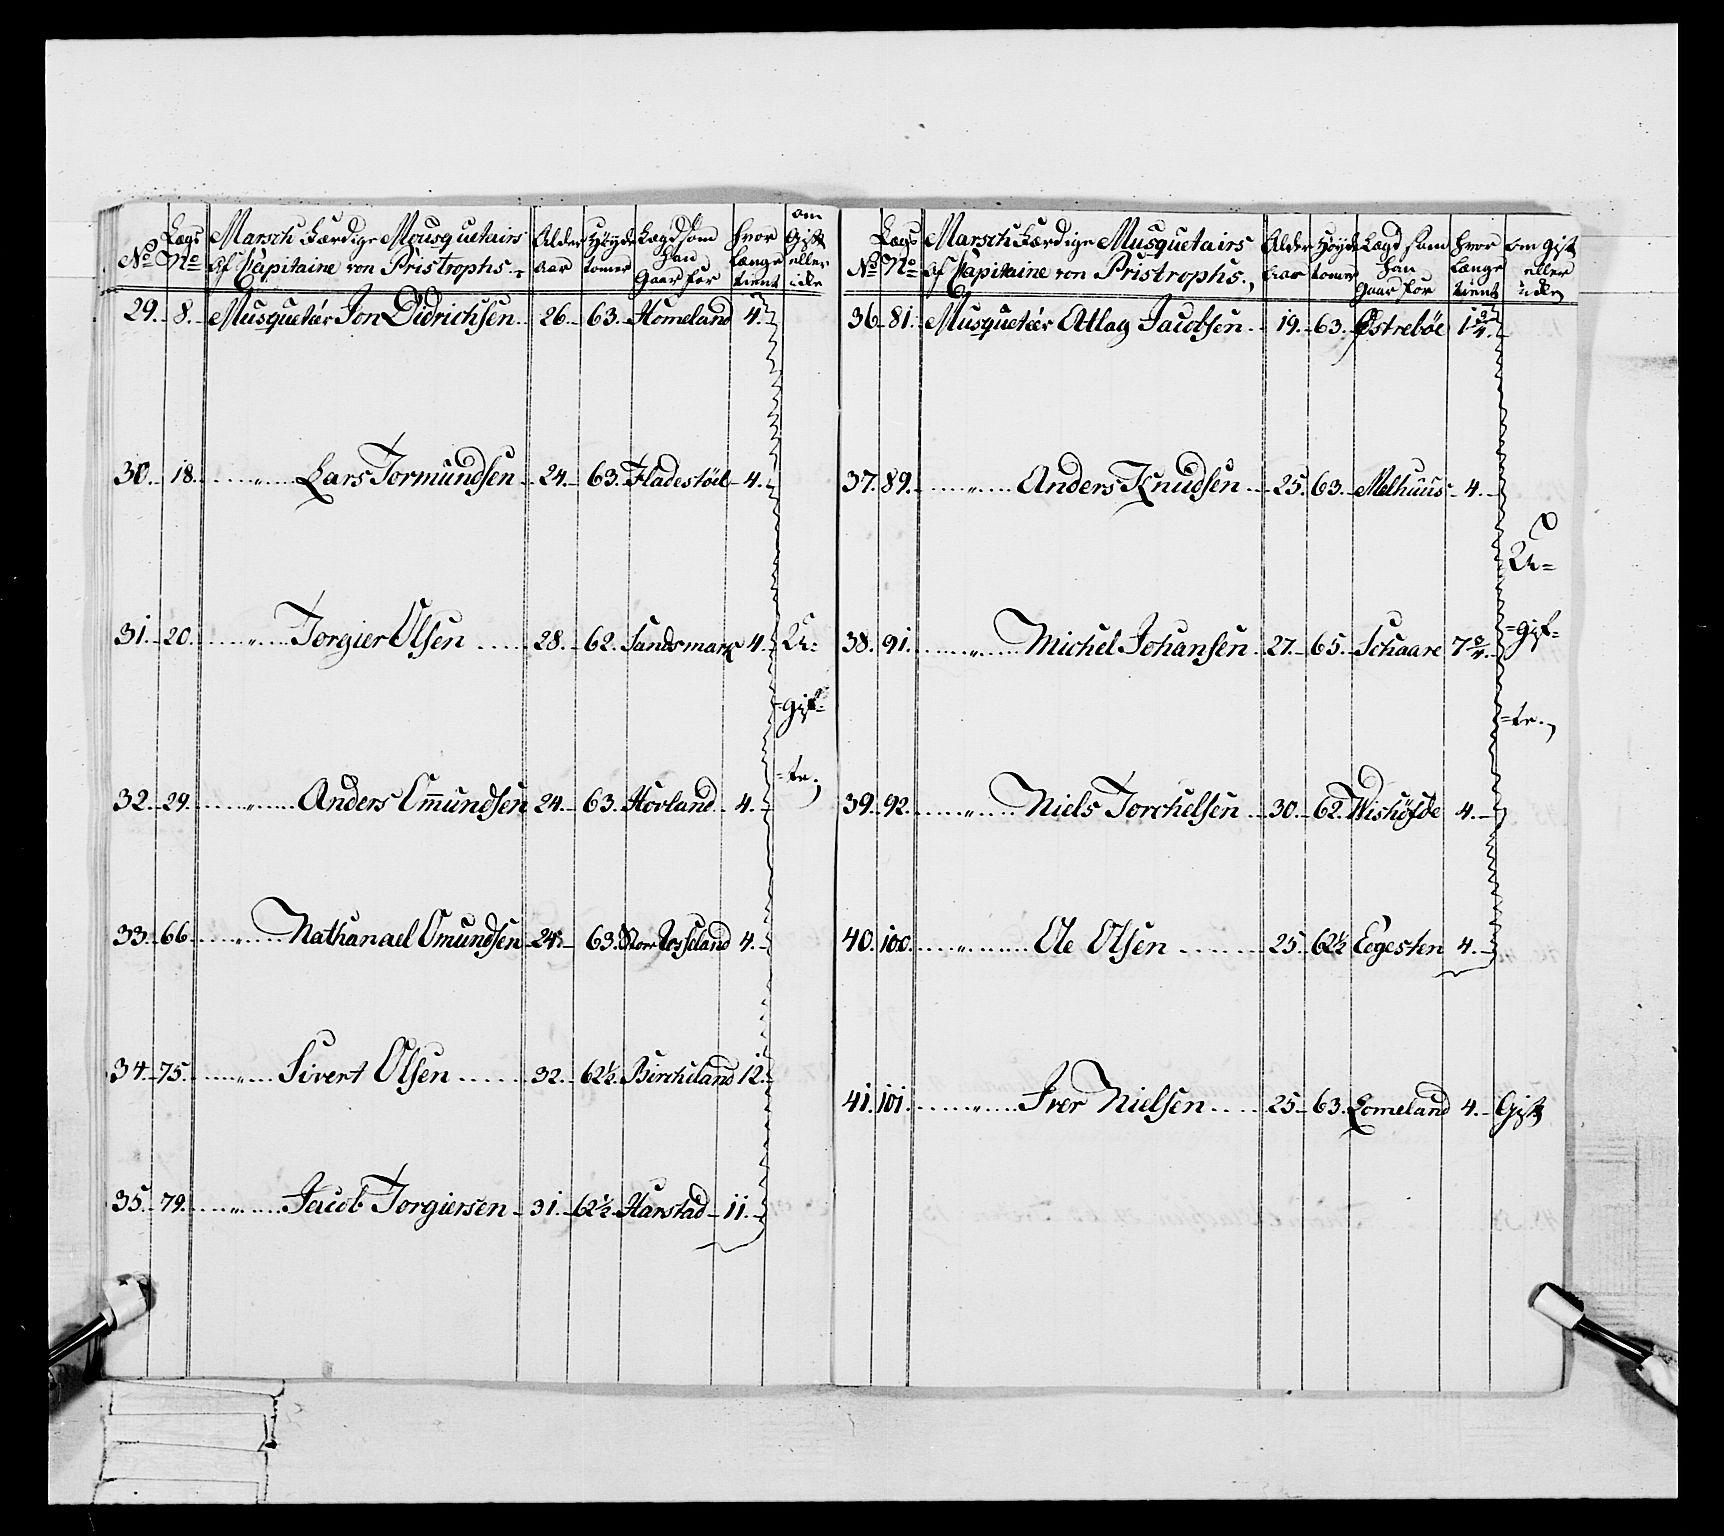 No Lægs No Marsch Færdige Mousquetairs af Capitaine von Pristrophs Alder aar Høyde tomer Lægd som han Gaar for hvor længe tient om Gift eller icke
29. 8. Musquetér Jon Didrichsen 26. 63. Homeland 4.
30. 18. " Lars Tormundsen 24. 63. Fladestöel 4.
31. 20. " Torgier Olsen 28. 62. Sandsmark 4. U=
=gif=
=te.
32. 29. " Anders Omundsen 24. 63. Hovland 4.
33. 66. " Nathanael Omundsen 24. 63. Store Rosseland 4.
34. 75. " Sivert Olsen 32. 62½. Bircheland 12.
35. 79. " Jacob Torgiersen 31. 62½. Harstad 11.
No Lægs No Marsch Færdige Musquetairs af Capitaine von Pristrophs. Alder aar Høyde tomer Lægd som han Gaar for hvor længe tient om gift eller icke
36. 81. Musquetér Atlag Jacobsen 19. 63. Østreböe 1 3/4.
37. 89. " Anders Knudsen 25. 63. Melhuus 4.
U=
38. 91. " Michel Johansen 27. 65. Schaare 7 =gif=
=te.
39. 92. " Niels Torchelsen 30. 62. Wishöfde 4.
40. 100. " Ole Olsen 25. 62½ Eegesten 4.
41. 101. " Iver Nielsen 25. 63. Lomeland 4. Gift